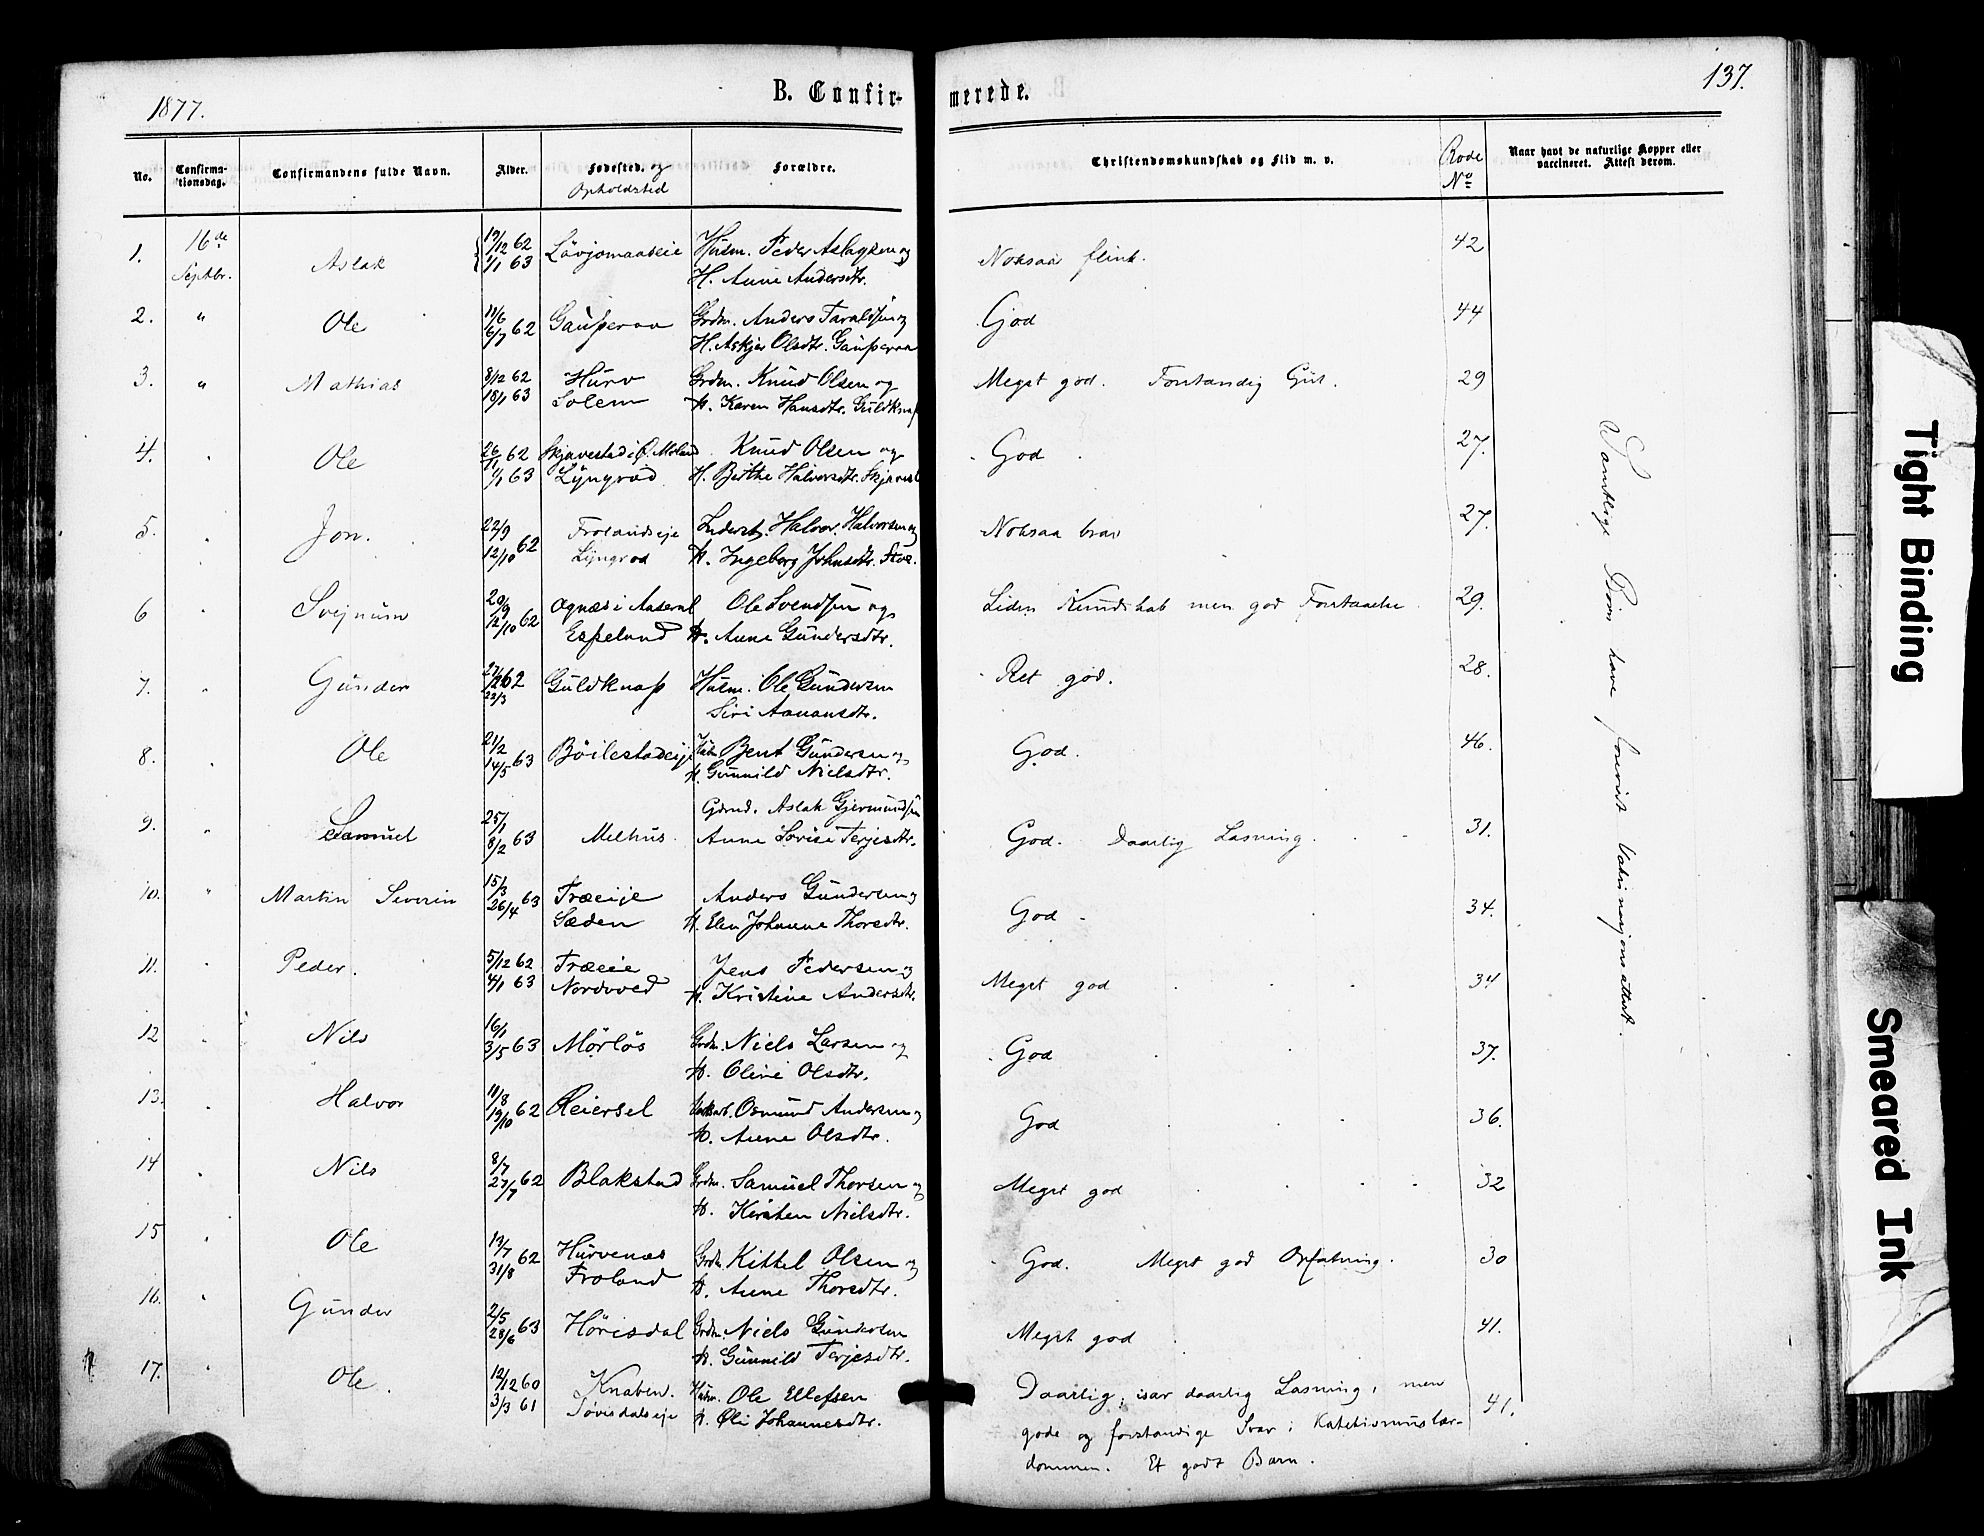 1877.
B. Confir-
merede.
137.
No.
Confirma-
tionsdag.
Confirmandens fulde Navn.
Alder.
Fødested. og
Opholdsted
Forældre.
Christendomskundskab og Flid m. v.
Rode
No
Naar havt de naturlige Kopper eller
vaccineret. Attest derom.
1. 16de Septbr. Aslak 19/12 62 1/1 63 Lövjomaaseie Husm. Peder Aslaksen og
H. Anne Andersdtr. Noksaa flink. 42
2. " Ole 11/6 6/7 62 Gauperaa Grdm. Anders Taraldsen og
H. Askjer Olsdtr. Gauperaa God 44
3. " Mathias 8/12 62 18/1 63 Hurv Grdm. Knud Olsen og
Solem H. Karen Hansdtr. Guldknap Meget god. Forstandig Gut. 29
4. " Ole 26/11 62 1/1 63 Skjævestad i Ø. Moland Knud Olsen og
Lyngrød H. Berthe Halvorsdtr. God 27.
5. " Jon. 22/9 12/10 62 Frolandseje Halvor Halvorsen og
Lyngrød H. Ingeborg Johnsdtr. Noksaa brav 27.
6 " Svejnum 20/9 12/10 62 Ognæs i Aaseral Ole Svendsen og
Espelund H. Anne Gundersdtr. Liden Kundskab men god Forstaaelse 29.
7. " Gunder 62 22/3 Guldknap Husm. Ole Gundersen
Siri Aanonsdtr. Ret god. 28.
8. " Ole 21/2 14/5 63 Böilestadeije Husm Bent Gundersen og
H. Gunnild Nielsdtr. God. 46.
9. " Samuel 25/1 8/2 63 Melhus. Gdmd. Aslak Gjermundsen
Anne Lovise Terjesdtr. God. Daarlig Læsning. 31.
10. " Martin Severin 15/3 26/4 63 Træeije Anders Gundersen og
Sæden H. Elen Johanne Thorsdtr. God 34.
11. " Peder. 5/12 62 4/1 63 Træeie Jens Pedersen og
Nordvved H. Kristine Andersdtr. Meget god 34
12 " Nils 16/1 3/5 63 Mörlös Grdm. Niels Larsen og
H. Oline Olsdtr. God 37.
13. " Halvor 11/8 19/10 62 Reiersel Osmund Andersen og
H. Anne Olsdtr. God 36.
14 " Nils 8/7 27/7 62 Blakstad Grdm. Samuel Thorsen og
H. Kirsten Nielsdtr. Meget god 32
15 " Ole 19/7 31/8 62 Hurvenæs Grdm. Kittel Olsen og
Froland H. Anne Thorsdtr. God. Meget god Opfatning. 30
16. " Gunder 2/5 28/6 63 Hörisdal Grdm. Niels Gundersen
H. Gunnild Terjesdtr. Meget god 41.
17. " Ole. 12/12 60 3/3 61 Knaben. Husm. Ole Ellefsen
Tövisdalseje H. Oli Johannesdtr. Daarlig, især daarlig Læsning, men 41.
gode og forstandige Svar i Katekismuslær-
dommen. Et godt Barn.
Samtlige Börn have forevist Vaksinasjonsattest.
Tight Binding
Smeared Ink